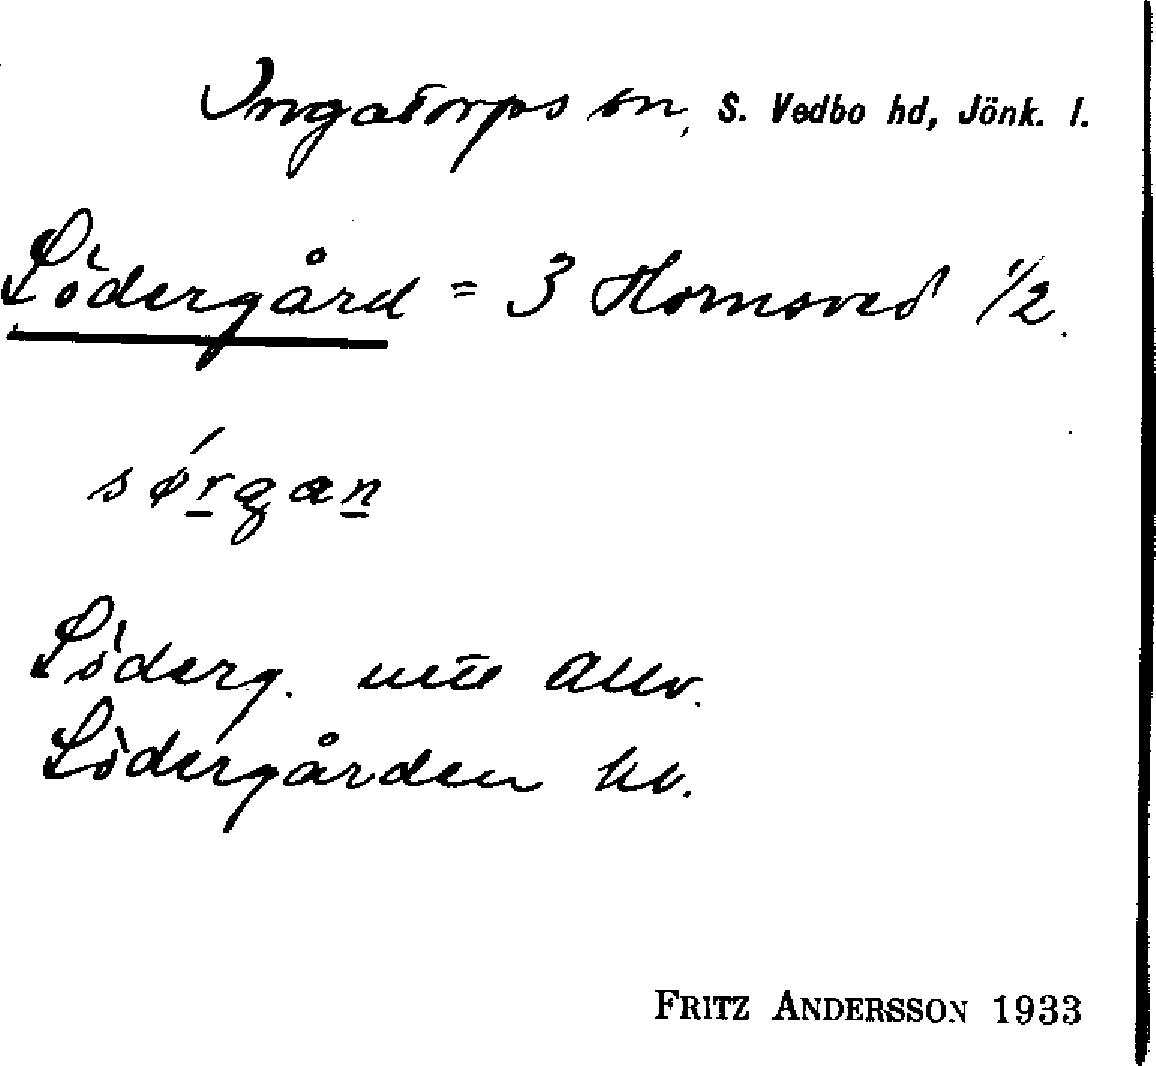 Ingatorps sn, S. Vedbo hd, Jönk. l.
Södergård = 3 Hornsved 1/2.
sørgan
Söderg.
Södergården kv.
FRITZ ANDERSSON 1933